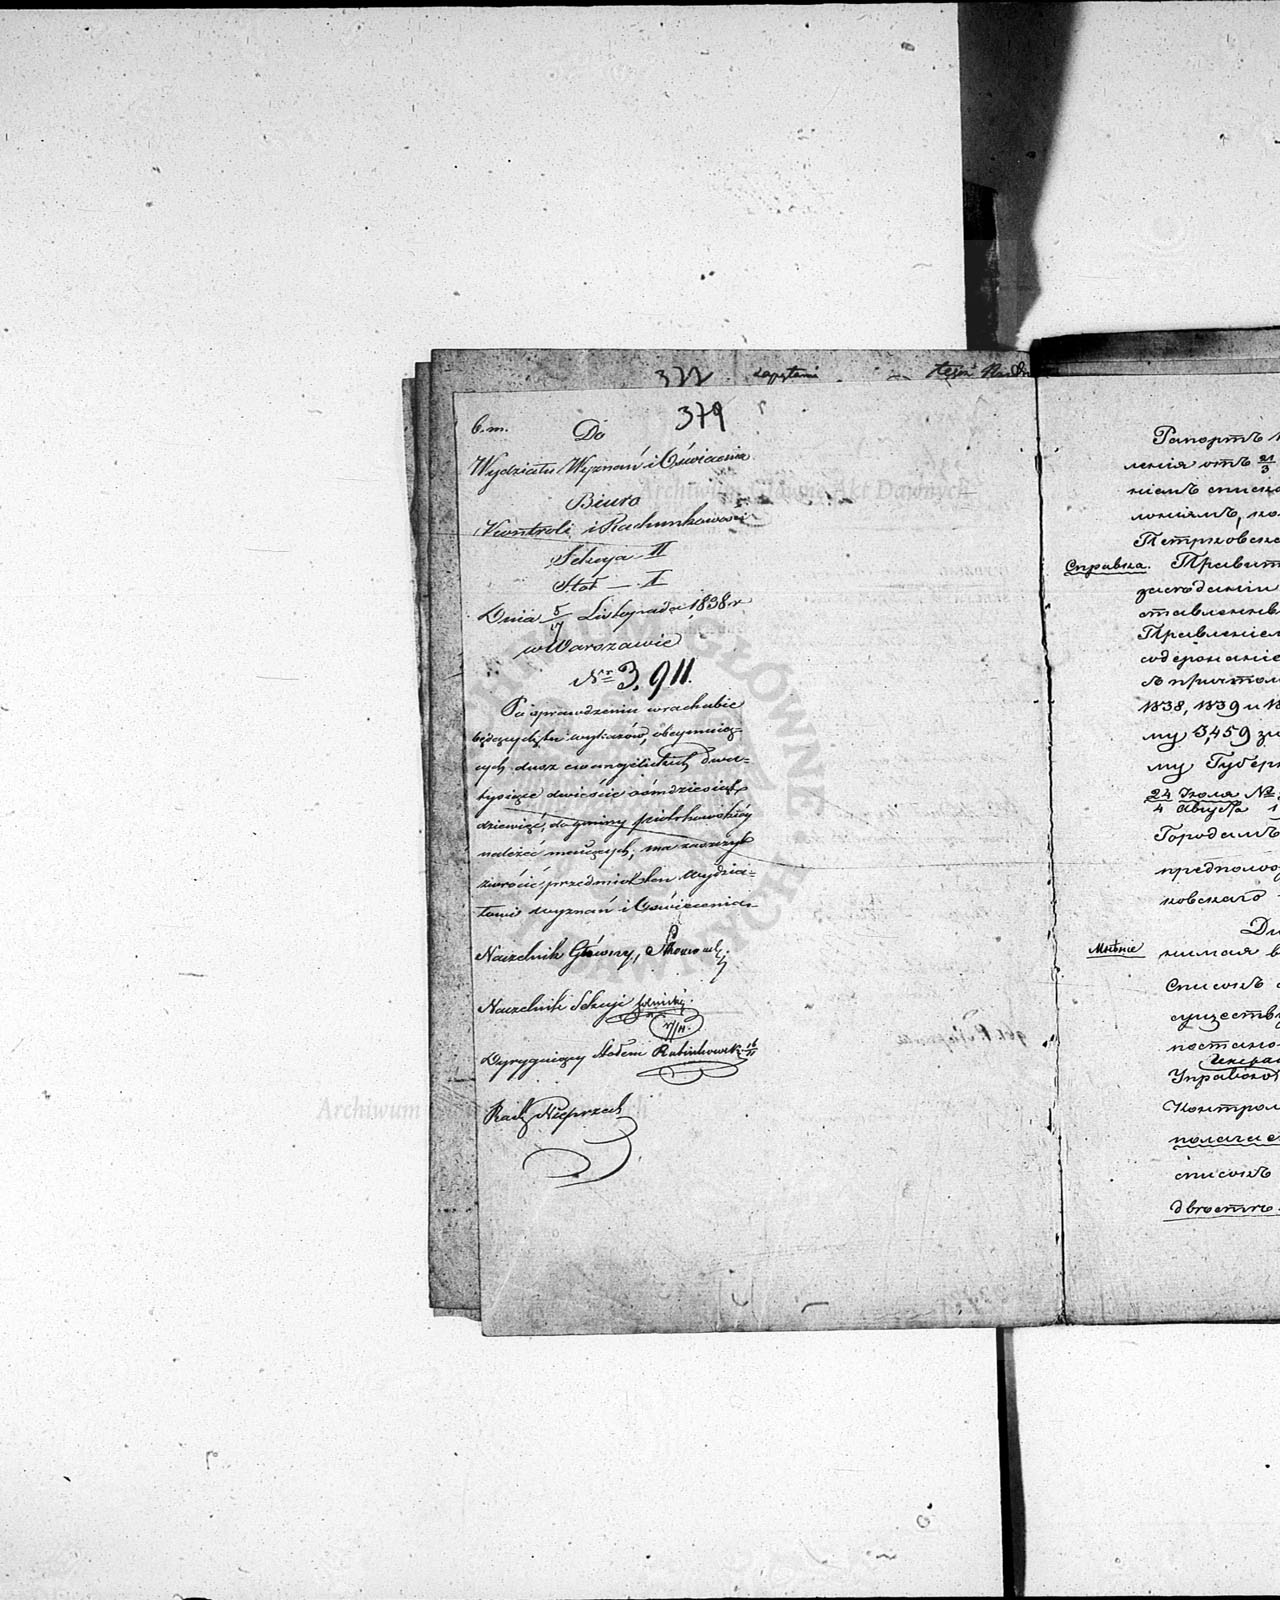 377 zapytani
379
b.m. Do
Wydziału Wyznań i Oświecenia
Biuro
Kontroli i Rachunkowości
Sekcya II
Stół — I
Dnia 5/17 Listopada 1838 r
w Warszawie
Nr 3,911.
Po sprawdzeniu w rachubie
będących tu wykazów, obeymują-
cych dusz ewangelickich dwa-
tysiące dwieście ośmdziesiąt
dziewięć, do gminy piotrkowskiéy
należeć maiących, ma zaszczyt
zwrócić przedmiot ten Wydzia-
łowi Wyznań i Oświecenia.
Naczelnik Główny,
Naczelnik Sekcyi
Dyrygujący Stołem Rabinkowski 16/11
Archiwum Główne Akt Dawnych
Рапортъ
ленія отъ 21/3
ніемъ списка
лоніямъ,
Петрковска
Справка. Правит
засѣданіи
ставленны
Правленіем
содержаніе
съ причтом
1838, 1839 и 18
му 3,459 зл
му Губерн
24 Іюля №
4 Августа 1
Городамъ
предполож
ковскаго
Мнѣніе нимая в
Списокъ
существ
постано
Генерал
Управской
Контрол
полагает
списокъ
двѣсти